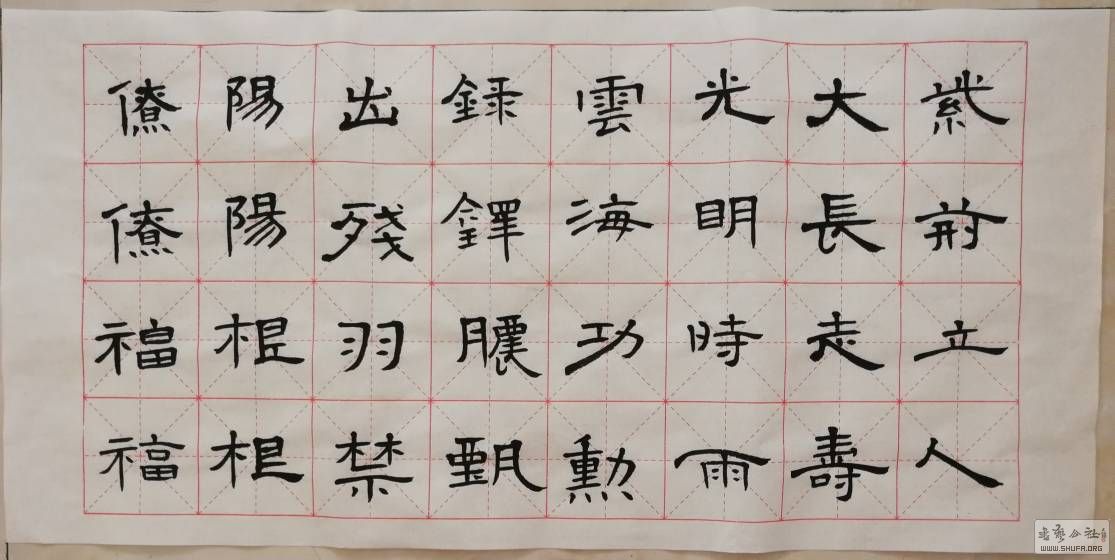 紫荊立人
大長走壽
光眀時雨
雲海功勳
録鐸甄
出殘羽禁
陽陽根根
僚僚福福
WWW.SHUFA.ORG